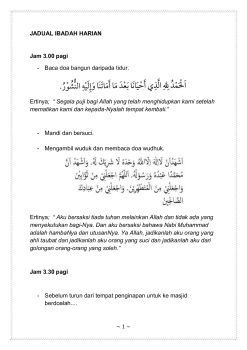 JADUAL IBADAH HARIAN
Jam 3.00 pagi
- Baca doa bangun daripada tidur.
اَلْحَمْدُ لِلّٰهِ الَّذِي أَحْيَانَا بَعْدَ مَا أَمَاتَنَا وَإِلَيْهِ النُّشُوْرُ.
Ertinya; “ Segala puji bagi Allah yang telah menghidupkan kami setelah
mematikan kami dan kepada-Nyalah tempat kembali.”
- Mandi dan bersuci.
- Mengambil wuduk dan membaca doa wudhuk,
أَشْهَدُ أَنْ لَا إِلَهَ إِلَّا اللهُ وَحْدَهُ لَا شَرِيْكَ لَهُ. وَأَشْهَدُ أَنَّ
مُحَمَّدًا عَبْدُهُ وَرَسُوْلُهُ. اَللّٰهُمَّ اجْعَلْنِيْ مِنَ التَّوَّابِيْنَ
وَاجْعَلْنِيْ مِنَ الْمُتَطَهِّرِيْنَ. وَاجْعَلْنِيْ مِنْ عِبَادِكَ
الصَّالِحِيْنَ
Ertinya; “ Aku bersaksi tiada tuhan melainkan Allah dan tidak ada yang
menyekutukan bagi-Nya. Dan aku bersaksi bahawa Nabi Muhammad
adalah hambaNya dan utusanNya. Ya Allah, jadikanlah aku orang yang
ahli taubat dan jadikanlah aku orang yang suci dan jadikanlah aku dari
golongan orang-orang yang soleh.”
Jam 3.30 pagi
- Sebelum turun dari tempat penginapan untuk ke masjid
berdoalah....
~ 1 ~